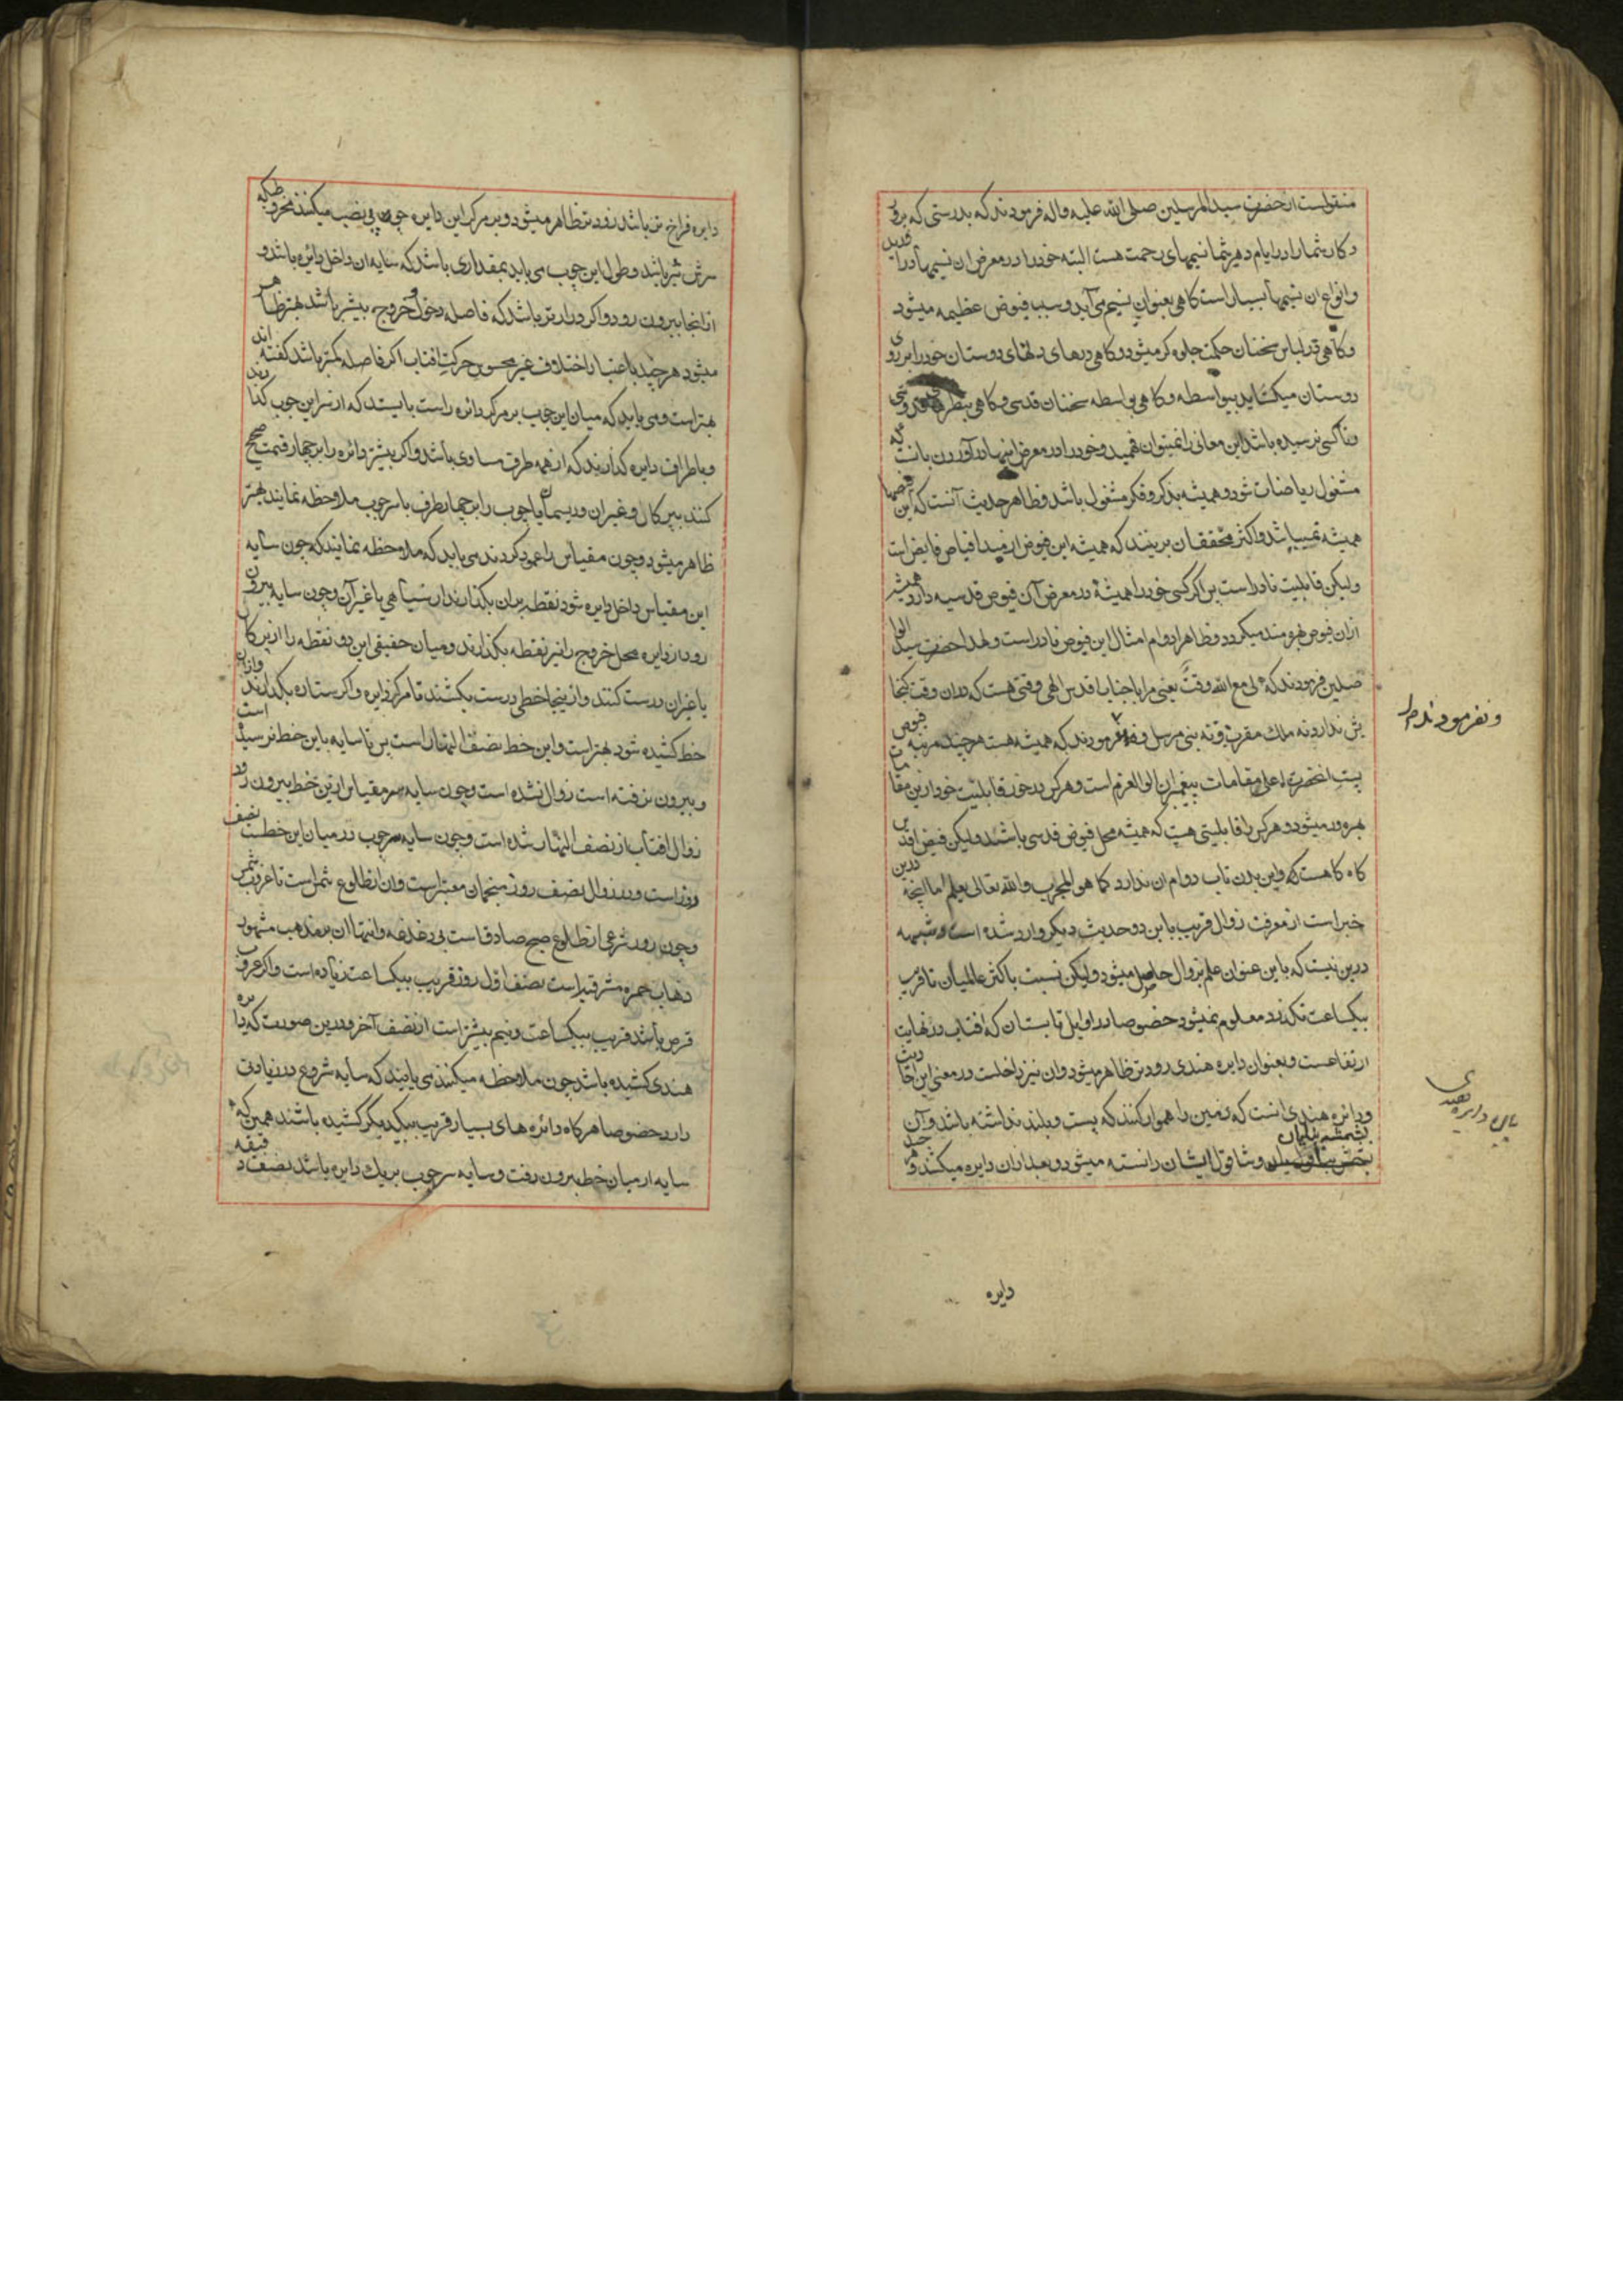 منقولست از حضرت سید المرسلین صلی الله علیه واله فرمودند که بدرستی که پرور
دکار شما را در ایام دهر شما نسیمهای رحمت هست البته خود را در معرض ان نسیمها درا
وانواع ان نسیمها بسیار است کاهی بعنوان نسیم می آید و سبب فیوض عظیمه میشود
وکاهی در لباس سخنان حکمت جلوه کر میشود و کاهی درهای دلهای دوستان خود را بر روی
دوستان میکشاید بیواسطه و کاهی بواسطه سخنان قدسی و کاهی بنظرهای
وتا کسی نرسیده باشد این معانی را نمیتوان فهمید وخود را در معرض اینها در آوردن بانست که
مشغول ریاضات شود و همیشه بذکر و فکر مشغول باشد و ظاهر حدیث آنست که این فیضها
همیشه نمیباشد و اکثر محققان برینند که همیشه این فیوض از مبدا فیاض فایض است
ولیکن قابلیت نادر است پس اکر کسی خود را همیشه در معرض آن فیوض قدسیه دارد همیشه
ازان فیوض بهره مند میکردد و ظاهرا دوام امثال این فیوض نادر است و لهذا حضرت سید الوا
صلین فرمودند که لی مع الله وقت یعنی مرا با جناب اقدس الهی وقتی هست که دران وقت کنجا
یش ندارد نه ملک مقرب و نه نبی مرسل و نفرمودند که همیشه هست هر چند مرتبه فیوض
پست انحضرت اعلی مقامات پیغمبران اولوالعزم است و هر کس در خور قابلیت خود ازین مقامات
بهره ور میشود و هر کس را قابلیتی هست که همیشه محل فیوض قدسی باشند ولیکن فیض اقدس
کاه کاهست که این بدن تاب دوام ان ندارد کما هو المجرب و الله تعالی یعلم اما انچه درین
خبر است از معرفت زوال قریب باین دو حدیث دیکر وارد شده است و شبهه
درین نیست که باین عنوان علم بزوال حاصل میشود ولیکن نسبت باکثر عالمیان تا قریب
بیکساعت نکذرد معلوم نمیشود خصوصا در اوایل تابستان که افتاب در نهایت
ارتفاعست و بعنوان دایره هندی زودتر ظاهر میشود وان نیز داخلست در معنی این احادیث
ودائره هندی انست که زمین را هموار کنند که پست و بلند نداشته باشد وآن
بتخته بنایان وشاقول ایشان دانسته میشود و بعد ازان دایره میکشند و هر چند
و نفرمودند
بیان دایره هندی
دایره
دایره فراخ تر باشد زودتر ظاهر میشود و بر مرکز این دایره چوبی نصب میکنند مخروطی که
سرش تیز باشد و طول این چوب می باید بمقداری باشد که سایه ان داخل دائره باشد و
از انجا بیرون رود و اکر درازتر باشد که فاصله دخول و خروج بیشتر باشد بهتر ظاهر
میشود هر چند باعتبار اختلاف غیر محسوس حرکت افتاب اکر فاصله کمتر باشد کفته اند
بهتر است و می باید که میان این چوب بر مرکز دائره راست بایستد که از سر این چوب کذا رند
و باطراف دایره کذارند که از همه طرف مساوی باشد و اکر پیشتر دائره را بر چهار قسمت صحیح
کنند بپرکال و غیر ان و ریسمان یا چوب را بر چهار طرف با سر چوب ملاحظه نمایند بهتر
ظاهر میشود و چون مقیاس را عمود کردند می باید که ملاحظه نمایند که چون سایه
این مقیاس داخل دایره شود نقطه بران بکذارند از سیاهی یا غیر آن و چون سایه بیرون
رود از دایره محل خروج را نیز نقطه بکذارند و میان حقیقی این دو نقطه را از پرکال
یا غیران درست کنند و از ینجا خطی درست بکشند تا مرکز دایره و اکر ستاره بکذارند وازان
خط کشیده شود بهتر است و این خط نصف النهار است پس تا سایه باین خط نرسیده است
و بیرون نرفته است زوال نشده است و چون سایه سر مقیاس ازین خط بیرون رود
زوال افتاب از نصف النهار شده است و چون سایه سر چوب در میان این خطست نصف
روز است و در زوال نصف روز منجمان معتبر است وان از طلوع شمس است تا غروب شمس
و چون روز شرعی از طلوع صبح صادق است بی دغدغه و انتهاء ان بمذهب مشهور
ذهاب حمره مشرقیه است نصف اول روز قریب بیکساعت زیاده است و اکر غروب
قرص باشد قریب بیکساعت و نیم بیشتر است از نصف آخر و درین صورت که دایره
هندی کشیده باشد چون ملاحظه میکنند می یابند که سایه شروع در زیادتی
دارد خصوصا هرکاه دائره های بسیار قریب بیکدیکر کشیده باشند همین که
سایه از میان خط بیرون رفت و سایه سر چوب بر یک دایره باشد نصف دقیقه